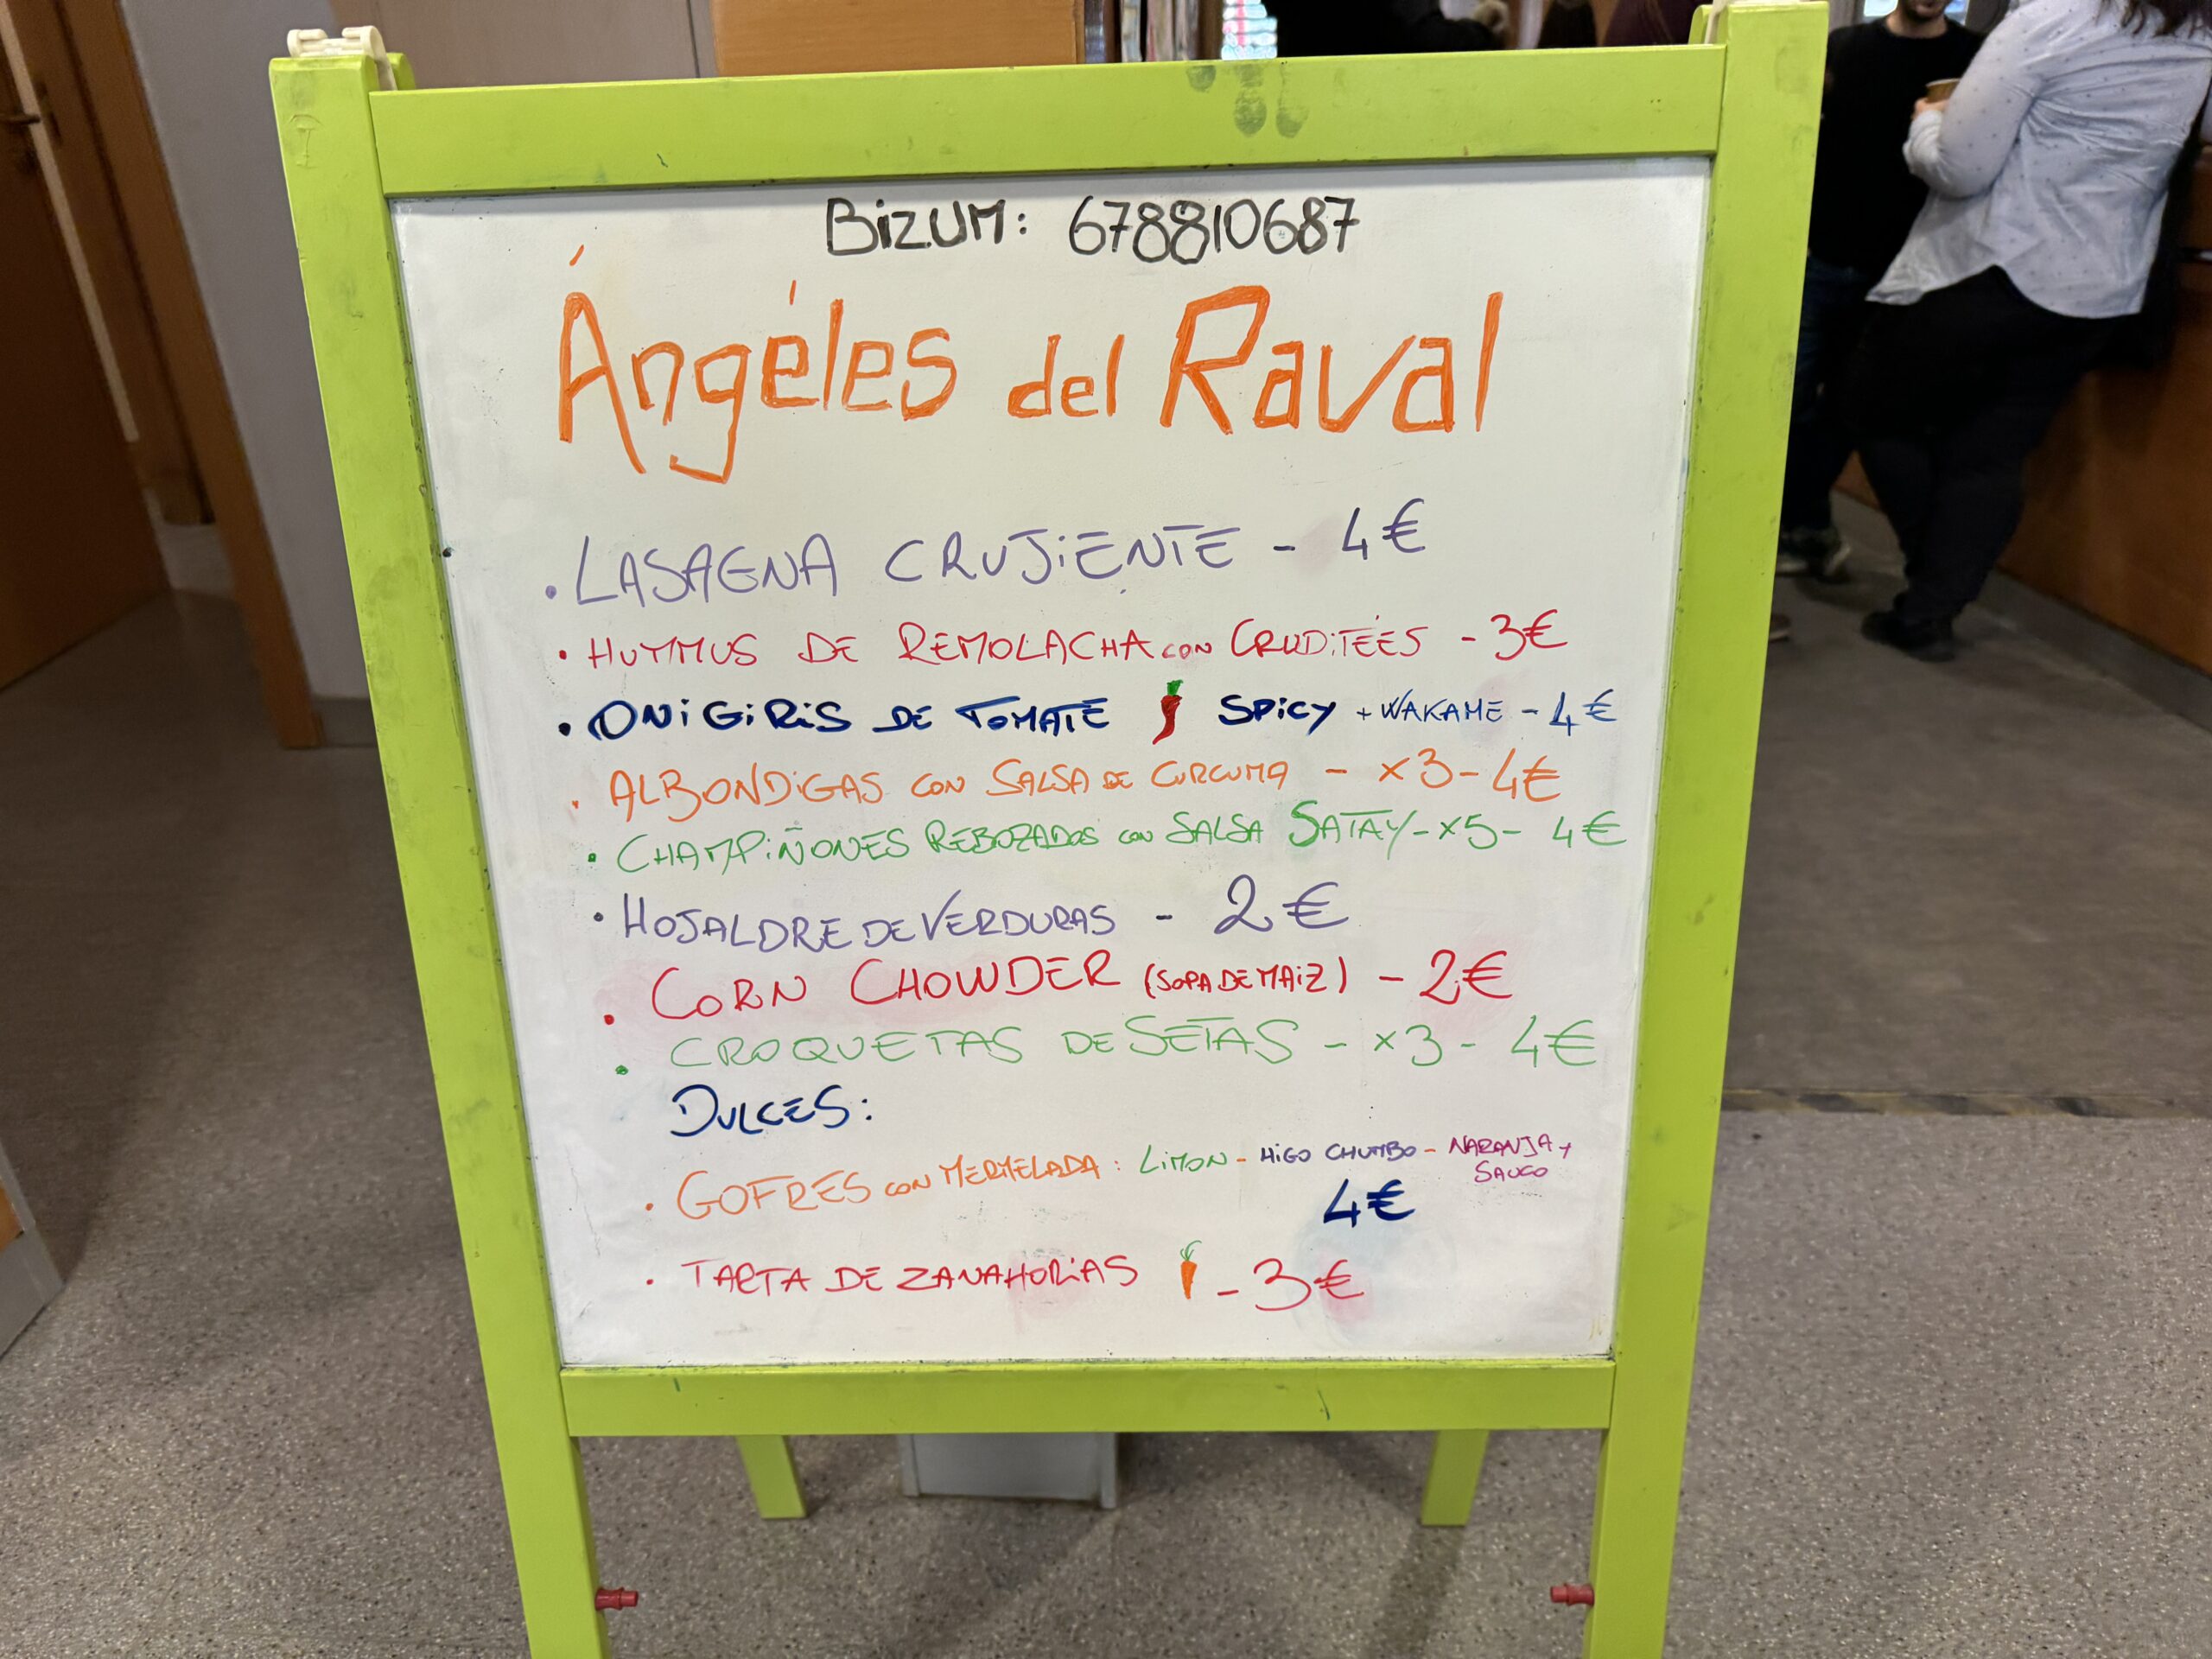 BizUM: 678810687
Ángéles del Raval
• LASAGNA CRUJiENTE - 4€
• HUMMUS DE REMOLACHA CON CRUDiTÉES - 3€
• ONiGiRiS DE TOMATE SPiCY + WAKAME - 4€
• ALBONDiGAS CON SALSA DE CURCUMA - x3 - 4€
• CHAMPiÑONES REBOZADOS CON SALSA SATAY - x5 - 4€
• HOJALDRE DE VERDURAS - 2€
• CORN CHOWDER (SOPA DE MAiZ) - 2€
• CROQUETAS DE SETAS - x3 - 4€
DULCES:
• GOFRES CON MERMELADA: LiMON - HiGO CHUMBO - NARANJA Y
SAUCO
4€
• TARTA DE ZANAHORiAS - 3€